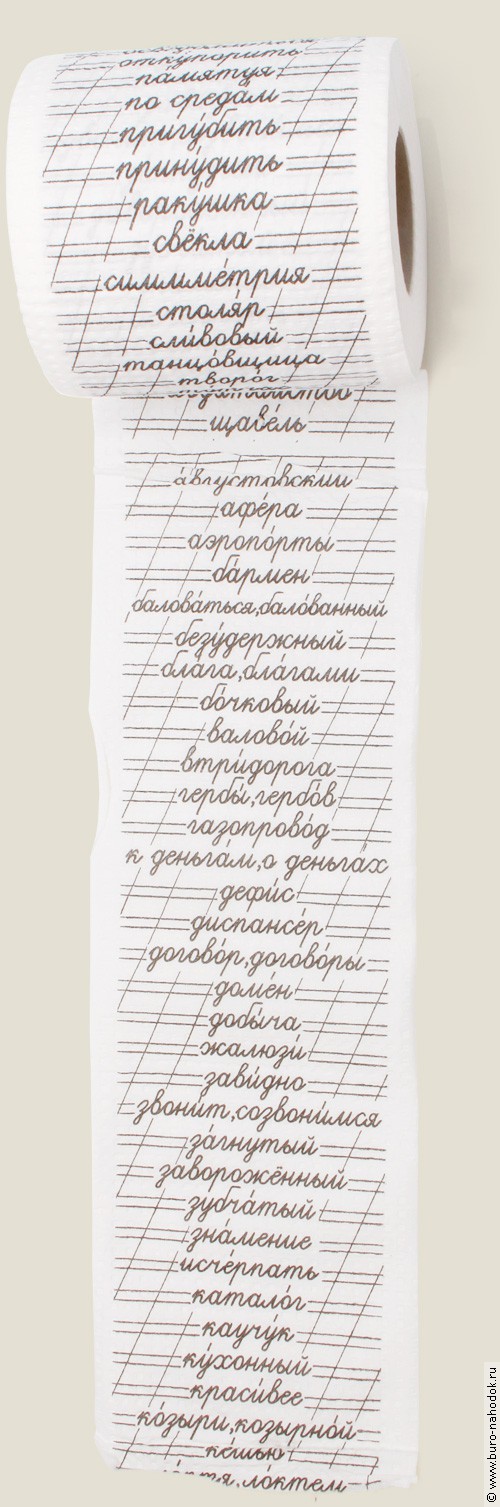 откупорить
па́мятуя
по среда́м
пригу́бить
прину́дить
раку́шка
свёкла
симмме́трия
столя́р
сли́вовый
танцо́вщица
творог
щаве́ль
а́вгустовский
афе́ра
аэропо́рты
ба́рмен
балова́ться,бало́ванный
безу́держный
бла́га,бла́гами
бо́чковый
валово́й
втри́дорога
гербы́,гербо́в
газопрово́д
к деньга́м,о деньга́х
дефи́с
диспансе́р
догово́р,догово́ры
доме́н
добы́ча
жалюзи́
зави́дно
звони́т,созвони́мся
за́гнутый
заворожённый
зубча́тый
зна́мение
исче́рпать
катало́г
каучу́к
ку́хонный
краси́вее
ко́зыри,козырно́й
ке́шью
ло́ктем
© www.buro-nahodok.ru